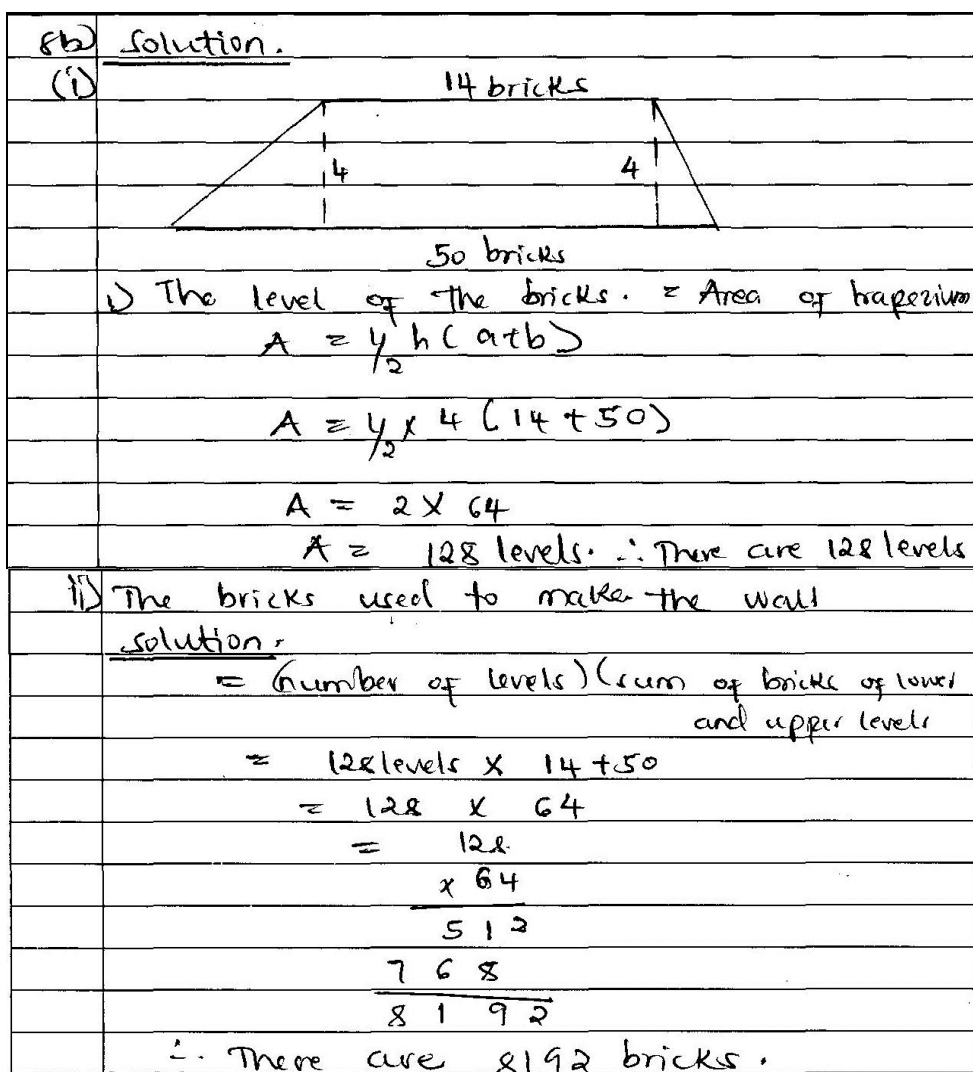 8b) Solution.
(i)
14 bricks
4
4
50 bricks
i) The level of the bricks. = Area of trapezium
A = 1/2 h (a+b)
A = 1/2 x 4 (14 + 50)
A = 2 X 64
A = 128 levels. ∴ There are 128 levels
ii) The bricks used to make the wall
solution.
= (number of levels) (sum of bricks of lower
and upper levels
= 128 levels x 14 + 50
= 128 x 64
= 128
x 64
5 1 2
7 6 8
8 1 9 2
∴ There are 8192 bricks.